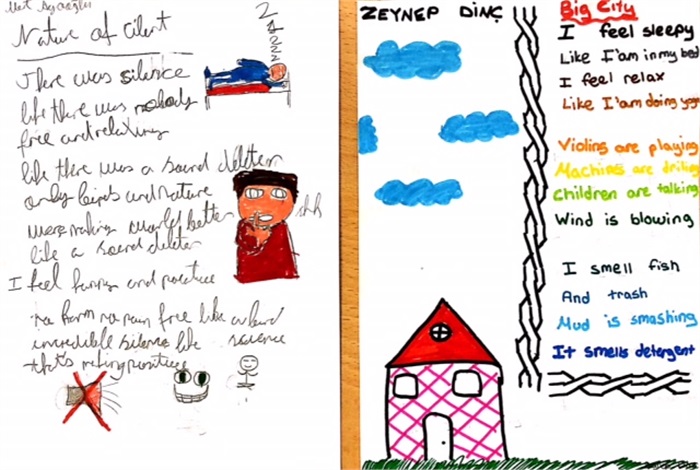 Nature of Cilent
There was silence
like there was nobody
free and relaxing
like there was a sound deleter
only birds and nature
were making world better
like a sound deleter
I feel funny and positive
no harm no pain free like a bird
incredible silence like science
that's positive
shh
ZEYNEP DİNÇ
Big City
I feel sleepy
Like I'am in my bed
I feel relax
Like I'am doing yoga
Violing are playing
Machines are driling
Children are talking
Wind is blowing
I smell fish
And trash
Mud is smashing
It smells detergent